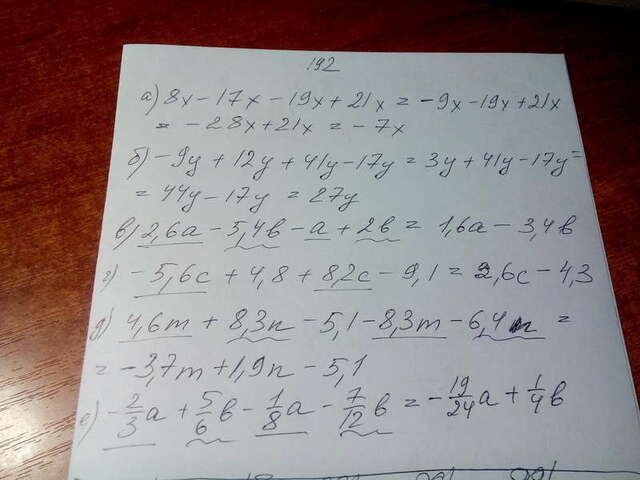 192
а) 8x - 17x - 19x + 21x = -9x - 19x + 21x
= -28x + 21x = -7x
б) -9y + 12y + 41y - 17y = 3y + 41y - 17y =
= 44y - 17y = 27y
в) 2,6a - 5,4b - a + 2b = 1,6a - 3,4b
г) -5,6c + 4,8 + 8,2c - 9,1 = 2,6c - 4,3
д) 4,6m + 8,3n - 5,1 - 8,3m - 6,4n =
= -3,7m + 1,9n - 5,1
е) -2/3a + 5/6b - 1/8a - 7/12b = -19/24a + 1/4b